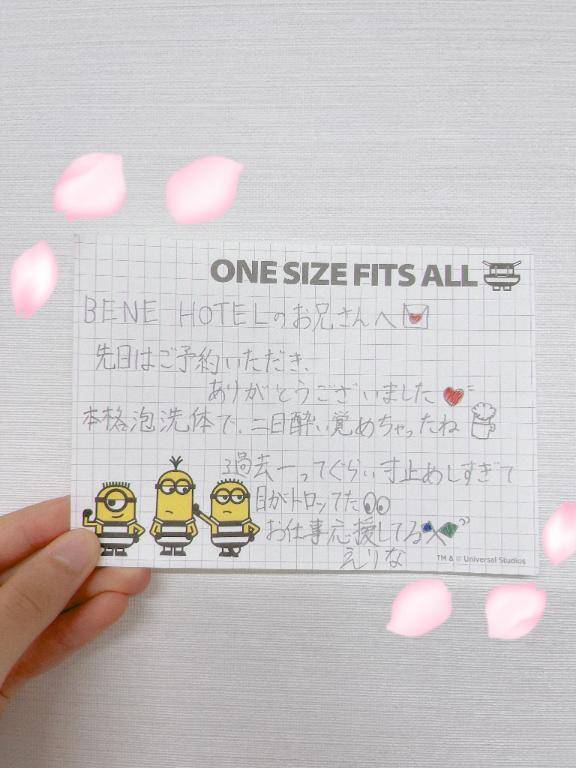 ONE SIZE FITS ALL
BENE HOTELのお兄さんへ
先日はご予約いただき、
ありがとうございました
本格泡洗体で、二日酔い覚めちゃったね
過去一ってぐらい寸止めしすぎて
目がトロンてた
お仕事応援してる
えりな
TM & © Universal Studios